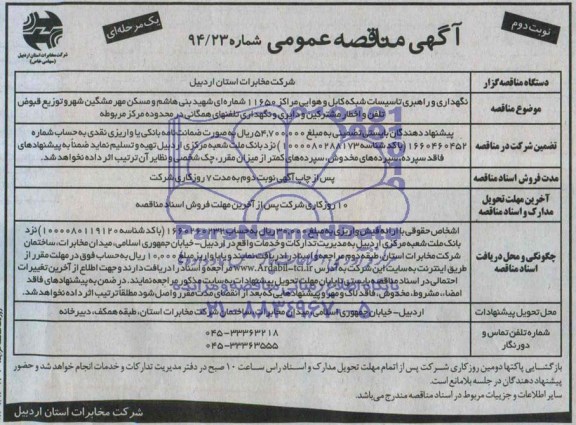 نوبت دوم
آگهی مناقصه عمومی شماره ۹۴/۲۳
یک مرحله‌ای
شرکت مخابرات استان اردبیل
(سهامی خاص)
دستگاه مناقصه گزار
شرکت مخابرات استان اردبیل
موضوع مناقصه
نگهداری و راهبری تاسیسات شبکه کابل و هوایی مراکز ۱۱۶۵۰ شماره ای شهید بنی هاشم و مسکن مهر مشگین شهر و توزیع قبوض
تلفن و اخطار مشترکین و دایری و نگهداری تلفنهای همگانی در محدوده مرکز مربوطه
تضمین شرکت در مناقصه
پیشنهاد دهندگان بایستی تضمینی به مبلغ ۵۴,۷۰۰,۰۰۰ ریال به صورت ضمانت نامه بانکی یا واریزی نقدی به حساب شماره
۱۶۶۰۴۶۰۴۵۲ (با کد شناسه ۱۰۰۰۰۰۸۰۲۸۸۱۷۳) نزد بانک ملت شعبه مرکزی اردبیل تهیه و تسلیم نماید ضمناً به پیشنهادهای
فاقد سپرده، سپرده‌های مخدوش، سپرده‌های کمتر از میزان مقرر، چک شخصی و نظایر آن ترتیب اثر داده نخواهد شد.
مدت فروش اسناد مناقصه
پس از چاپ آگهی نوبت دوم به مدت ۷ روز کاری شرکت
آخرین مهلت تحویل
مدارک و اسناد مناقصه
۱۰ روز کاری شرکت پس از آخرین مهلت فروش اسناد مناقصه
چگونگی و محل دریافت
اسناد مناقصه
اشخاص حقوقی با ارائه فیش واریزی به مبلغ ۳۰۰,۰۰۰ ریال به حساب (با کد شناسه ۱۰۰۰۰۰۸۰۱۱۹۱۲۰) نزد
بانک ملت شعبه مرکزی اردبیل به مدیریت تدارکات و خدمات واقع در اردبیل - خیابان جمهوری اسلامی، میدان مخابرات، ساختمان
شرکت مخابرات استان، طبقه دوم مراجعه و اسناد را دریافت نمایند و یا با واریز مبلغ ریال به حساب فوق در مهلت مقرر از
طریق اینترنت به سایت این شرکت به آدرس www.Ardabil-tci.ir مراجعه و اسناد را دریافت دارند و جهت اطلاع از آخرین تغییرات
احتمالی در اسناد مناقصه بایستی تا پایان مهلت تحویل پیشنهادات به سایت مذکور مراجعه نمایند. در ضمن به پیشنهادهای فاقد
امضاء، مشروط، مخدوش، فاقد لاک و مهر و پیشنهادهایی که بعد از انقضای مدت مقرر واصل شود مطلقا ترتیب اثر داده نخواهد شد.
محل تحویل پیشنهادات
اردبیل - خیابان جمهوری اسلامی، میدان مخابرات، ساختمان شرکت مخابرات استان، طبقه همکف، دبیرخانه
شماره تلفن تماس و
دورنگار
۰۴۵-۳۳۳۶۳۲۱۸
۰۴۵-۳۳۳۶۳۵۵۵
بازگشایی پاکتها دومین روز کاری شرکت پس از اتمام مهلت تحویل مدارک و اسناد راس ساعت ۱۰ صبح در دفتر مدیریت تدارکات و خدمات انجام خواهد شد و حضور
پیشنهاد دهندگان در جلسه بلامانع است.
سایر اطلاعات و جزییات مربوط در اسناد مناقصه مندرج می‌باشد.
شرکت مخابرات استان اردبیل
ParsNamadData